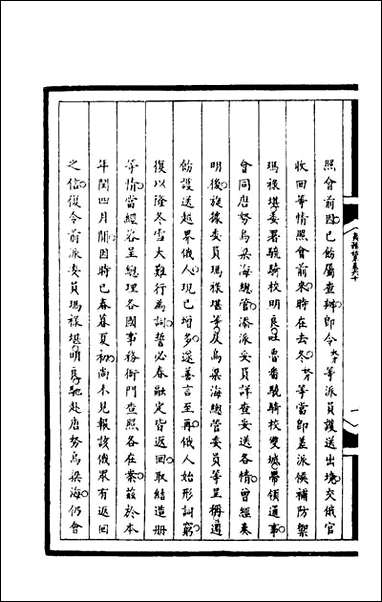 照會前因已飭屬查辦即令等派員護送出境交俄官
收回等情照會前來時在去冬等當即差派候補防禦
瑪祿堪委署驍騎校明良吐魯番驍騎校雙城帶領通事
會同唐努烏梁海總管添派妥員詳查妥送各情曾經奏
明後旋據委員瑪祿堪等及烏梁海總管委員等呈稱遵
飭設送越界俄人現已增多逐善言至再俄人始形詞窮
復以隆冬雪大難行為詞誓必春融定皆返回取結造冊
等情當經咨呈總理各國事務衙門查照各在案茲於本
年閏四月間因時已春暮夏初尚未見報該俄眾有返回
之信復令前派委員瑪祿堪明良馳赴唐努烏梁海仍會